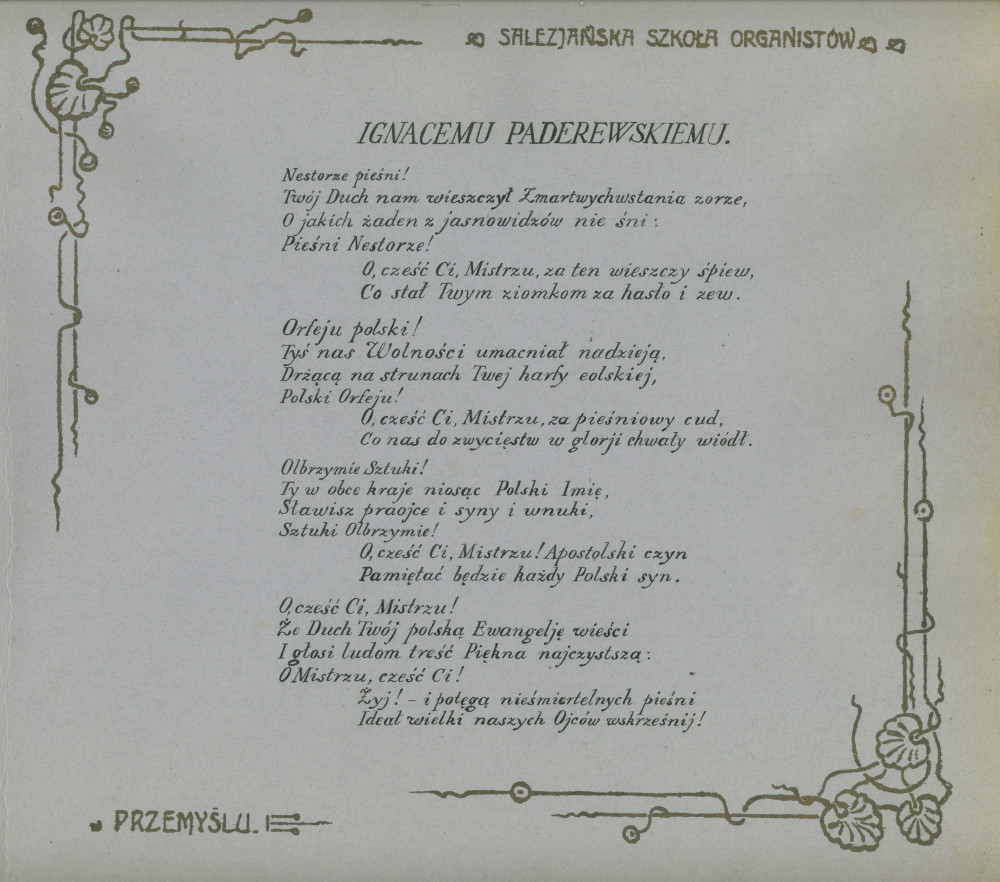 SALEZJAŃSKA SZKOŁA ORGANISTÓW
IGNACEMU PADEREWSKIEMU.
Nestorze pieśni!
Twój Duch nam wieszczył Zmartwychwstania zorze,
O jakich żaden z jasnowidzów nie śni:
Pieśni Nestorze!
O, cześć Ci, Mistrzu, za ten wieszczy śpiew,
Co stał Twym ziomkom za hasło i zew.
Orfeju polski!
Tyś nas Wolności umacniał nadzieją,
Drżącą na strunach Twej harfy eolskiej,
Polski Orfeju!
O, cześć Ci, Mistrzu, za pieśniowy cud,
Co nas do zwycięstw w glorji chwały wiódł.
Olbrzymie Sztuki!
Ty w obce kraje niosąc Polski Imię,
Sławisz praojce i syny i wnuki,
Sztuki Olbrzymie!
O, cześć Ci, Mistrzu! Apostolski czyn
Pamiętać będzie każdy Polski syn.
O, cześć Ci, Mistrzu!
Że Duch Twój polską Ewangelję wieści
I głosi ludom treść Piękna najczystszą:
O Mistrzu, cześć Ci!
Żyj! - i potęgą nieśmiertelnych pieśni
Ideał wielki naszych Ojców wskrześnij!
PRZEMYŚLU.